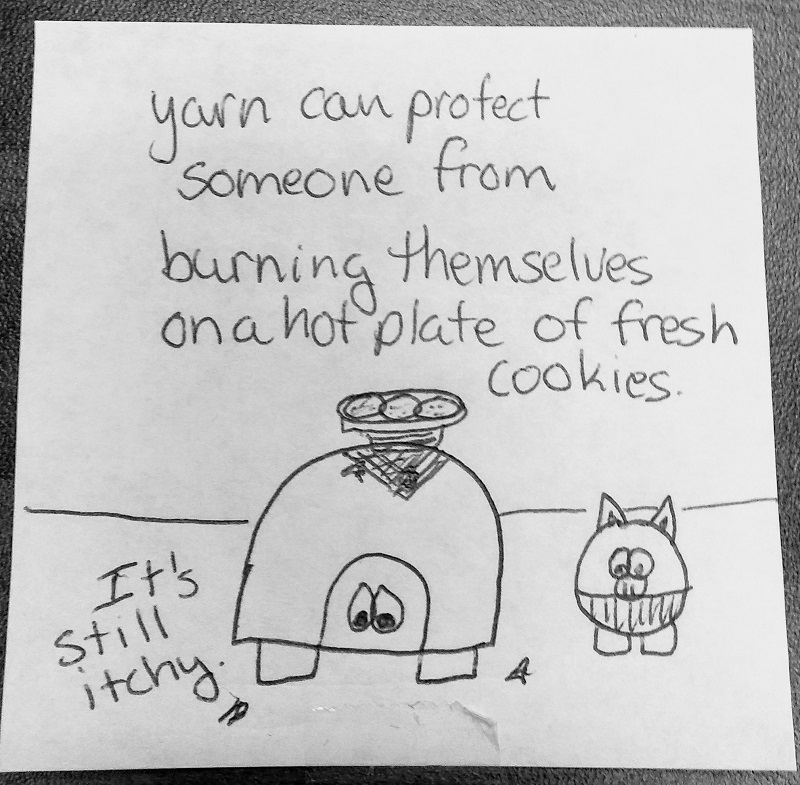 yarn can protect
someone from
burning themselves
on a hot plate of fresh
cookies.
It's
still
itchy.